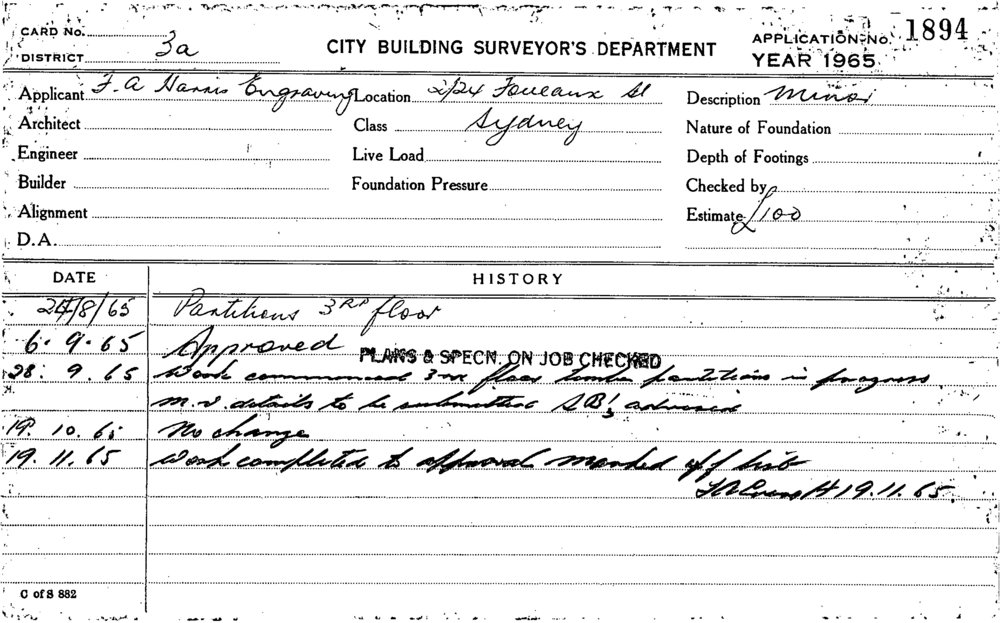 CARD No.
DISTRICT 3a
CITY BUILDING SURVEYOR'S DEPARTMENT
APPLICATION No. 1894
YEAR 1965
Applicant F. A Harris Engraving Location 2/24 Foveaux St Description Minor
Architect Class Sydney Nature of Foundation
Engineer Live Load Depth of Footings
Builder Foundation Pressure Checked by
Alignment Estimate £100
D.A.
DATE HISTORY
24/8/65 Partitions 3RD floor
6. 9. 65 Approved PLANS & SPECN. ON JOB CHECKED
28. 9. 65 Work commenced 3rd floor timber partitions in progress
m.v. details to be submitted advised
19. 10. 65 No change
19. 11. 65 Work completed to approval marked off list
19.11.65
C of S 882